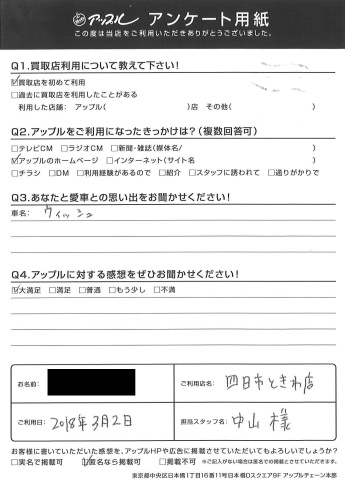 アップル アンケート用紙
この度は当店をご利用いただきありがとうございました。
Q1.買取店利用について教えて下さい!
☑買取店を初めて利用
□過去に買取店を利用したことがある
利用した店舗: アップル( )店 その他( )
Q2.アップルをご利用になったきっかけは?(複数回答可)
□テレビCM □ラジオCM □新聞・雑誌(媒体名/ )
☑アップルのホームページ □インターネット(サイト名 )
□チラシ □DM □利用経験があるので □紹介 □スタッフに誘われて □通りがかりで
Q3.あなたと愛車との思い出をお聞かせください!
車名: ウィッシュ
Q4.アップルに対する感想をぜひお聞かせください!
☑大満足 □満足 □普通 □もう少し □不満
お名前:
ご利用店名: 四日市ときわ店
ご利用日: 2018年3月2日
担当スタッフ名: 中山 様
お客様に書いていただいた感想を、アップルHPや広告に掲載させていただいてもよろしいでしょうか?
□実名で掲載可 ☑匿名なら掲載可 □掲載不可 ※ご記入がない場合は匿名での掲載とさせていただきます。
東京都中央区日本橋1丁目16番11号日本橋Dスクエア9F アップルチェーン本部